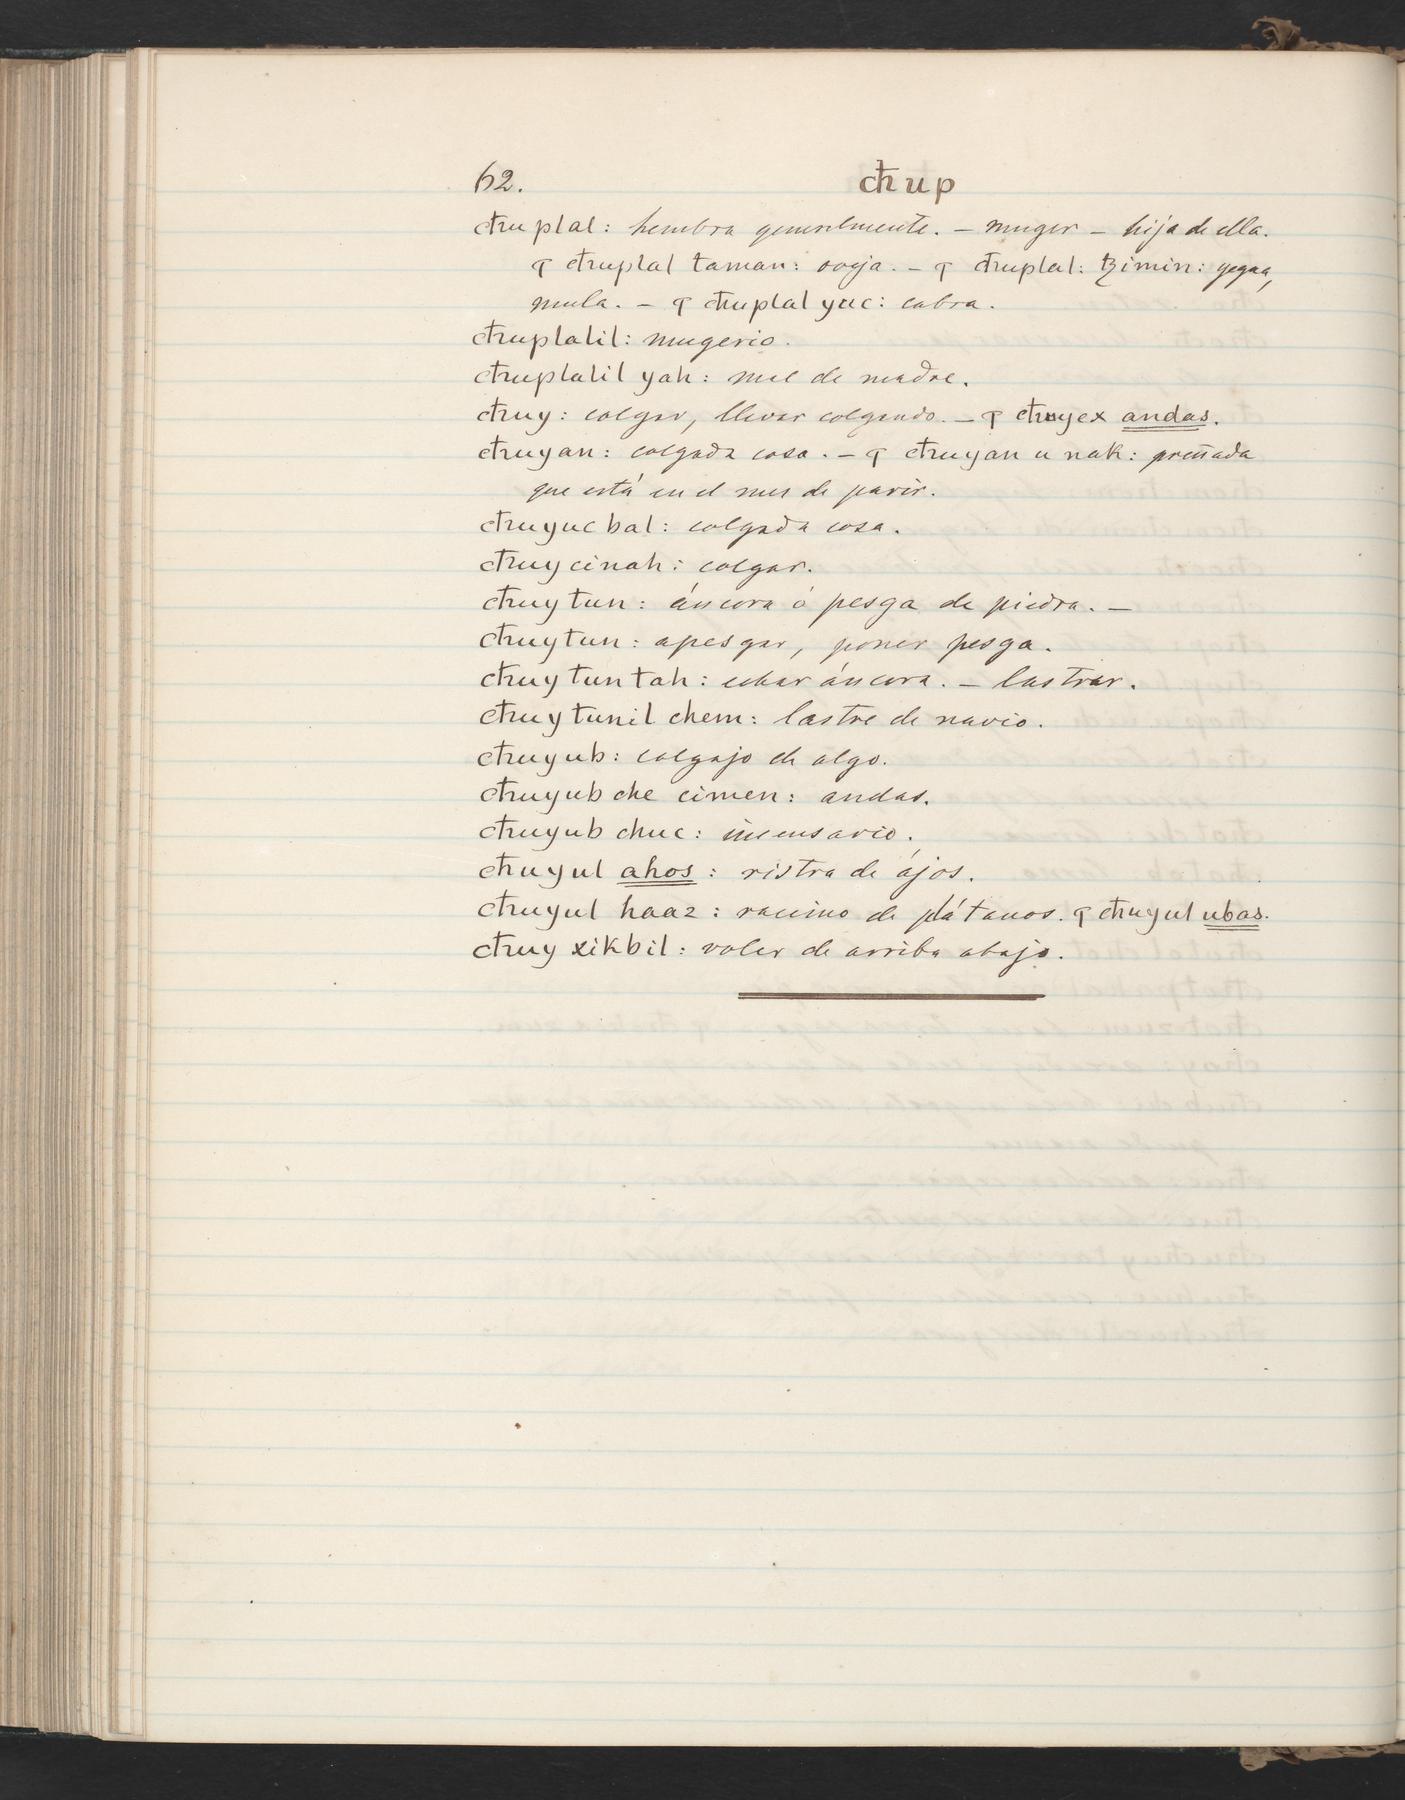 62. cħup
cħuplal: hembra generalmente. – muger – hija de ella.
ꟼ cħuplal taman: oveja. – ꟼ cħuplal: tzimin: yegua,
mula. – ꟼ cħuplal yuc: cabra.
cħuplalil: mugerio.
cħuplalil yah: mal de madre.
cħuy: colgar, llevar colgando. – ꟼ cħuyex andas.
cħuyan: colgada cosa. – ꟼ cħuyan u nak: preñada
que está en el mes de parir.
cħuyucbal: colgada cosa.
cħuycinah: colgar.
cħuytun: áncora ó pesga de piedra. –
cħuytun: apesgar, poner pesga.
cħuytuntah: echar áncora. – lastrar.
cħuytunil chem: lastre de navio.
cħuyub: colgajo de algo.
cħuyub che cimen: andas.
cħuyub chuc: incensario.
cħuyul ahos: ristra de ájos.
cħuyul haaz: racimo de plátanos. ꟼ cħuyul ubas.
cħuy xikbil: volar de arriba abajo.